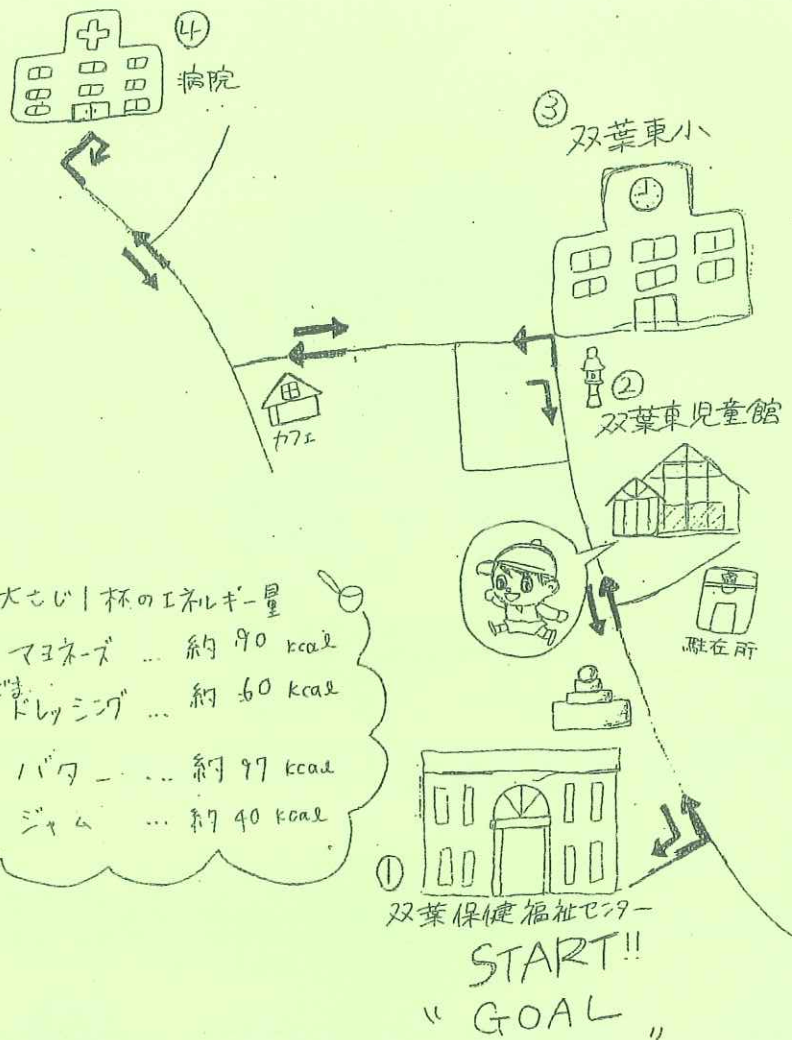 ④
病院
③
双葉東小
②
双葉東児童館
カフェ
駐在所
大さじ1杯のエネルギー量
マヨネーズ … 約90 kcal
ごま
ドレッシング … 約60 kcal
バター … 約97 kcal
ジャム … 約40 kcal
①
双葉保健福祉センター
START!!
〃 GOAL 〃